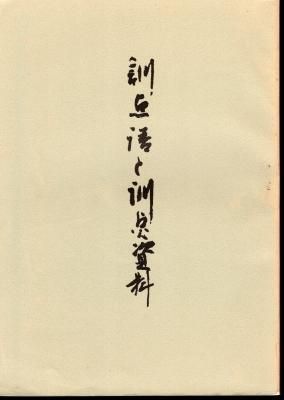 訓点語と訓点資料